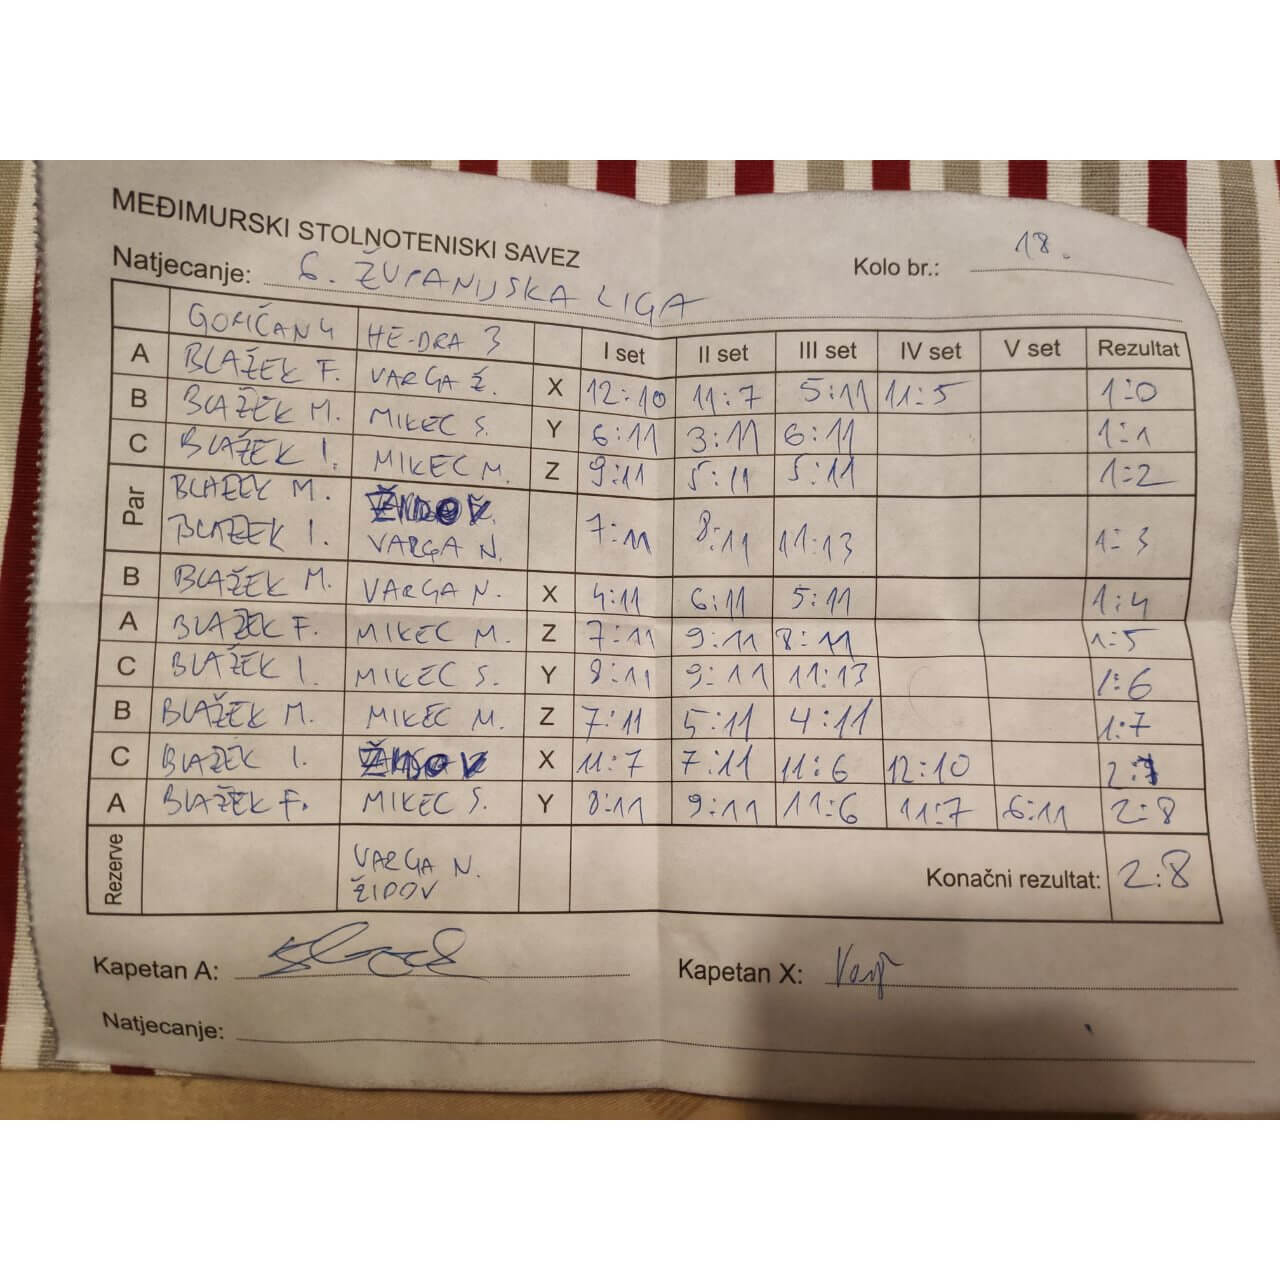 MEĐIMURSKI STOLNOTENISKI SAVEZ
Natjecanje: 6. ŽUPANIJSKA LIGA Kolo br.: 18.
GORIČAN 4 HE-DRA 3 I set II set III set IV set V set Rezultat
A BLAŽEK F. VARGA Ž. X 12:10 11:7 5:11 11:5 1:0
B BLAŽEK M. MIKEC S. Y 6:11 3:11 6:11 1:1
C BLAŽEK I. MIKEC M. Z 9:11 5:11 5:11 1:2
Par BLAŽEK M. ŽIDOV
BLAZEK I. VARGA N. 7:11 8:11 11:13 1:3
B BLAŽEK M. VARGA N. X 4:11 6:11 5:11 1:4
A BLAŽEK F. MIKEC M. Z 7:11 9:11 8:11 1:5
C BLAŽEK I. MIKEC S. Y 8:11 9:11 11:13 1:6
B BLAŽEK M. MIKEC M. Z 7:11 5:11 4:11 1:7
C BLAŽEK I. ŽIDOV X 11:7 7:11 11:6 12:10 2:7
A BLAŽEK F. MIKEC S. Y 8:11 9:11 11:6 11:7 6:11 2:8
Rezerve VARGA N.
ŽIDOV
Konačni rezultat: 2:8
Kapetan A: Kapetan X:
Natjecanje: